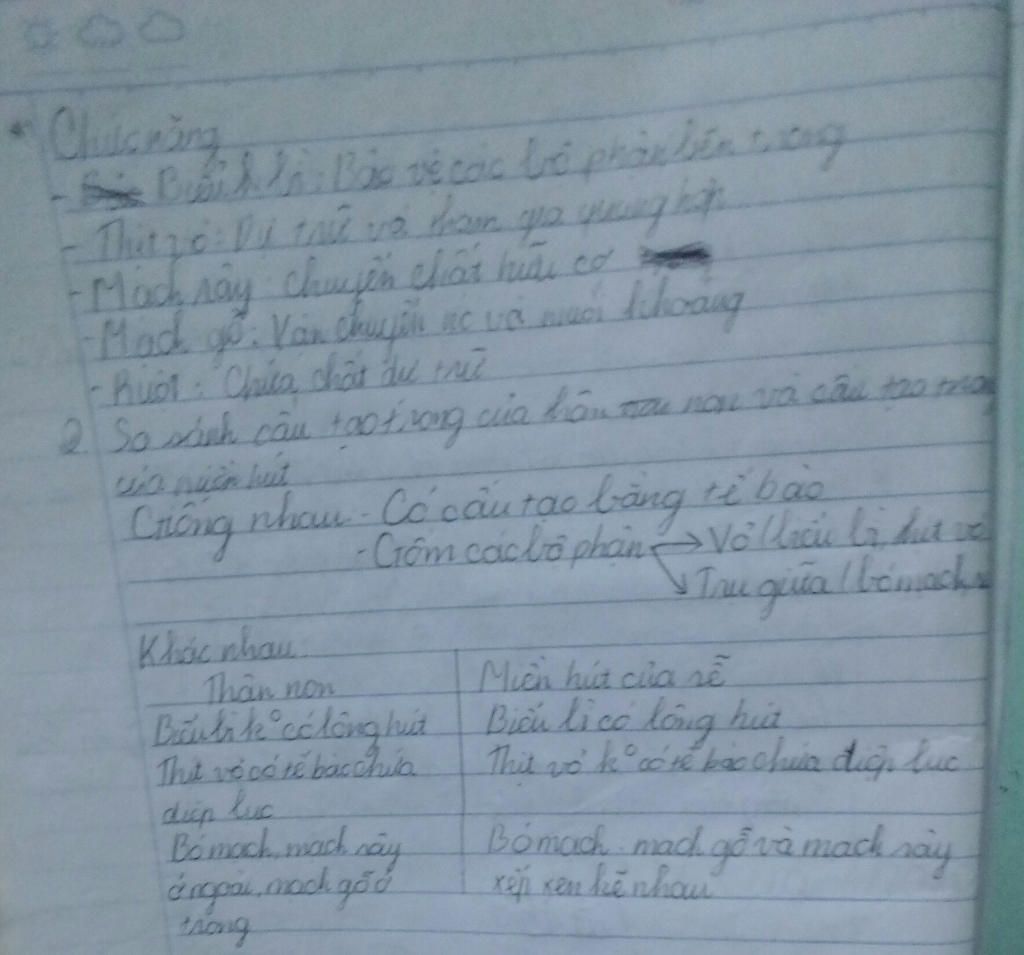 * Chức năng
- Biểu bì: Bảo vệ các bộ phận bên trong
- Thịt vỏ: Dự trữ và tham gia quang hợp
- Mạch rây: chuyển chất hữu cơ
- Mạch gỗ: Vận chuyển nc và muối khoáng
- Ruột: Chứa chất dự trữ
2 So sánh cấu tạo trong của thân non và cấu tạo trong
của miền hút
Giống nhau - Có cấu tạo bằng tế bào
- Gồm các bộ phận → Vỏ (biểu bì, thịt vỏ
↘ Trụ giữa (bó mạch,
Khác nhau:
Thân non | Miền hút của rễ
Biểu bì k° có lông hút | Biểu bì có lông hút
Thịt vỏ có tế bào chứa | Thịt vỏ k° có tế bào chứa diệp lục
diệp lục
Bó mạch, mạch rây | Bó mạch: mạch gỗ và mạch rây
ở ngoài, mạch gỗ ở | xếp xen kẽ nhau
trong